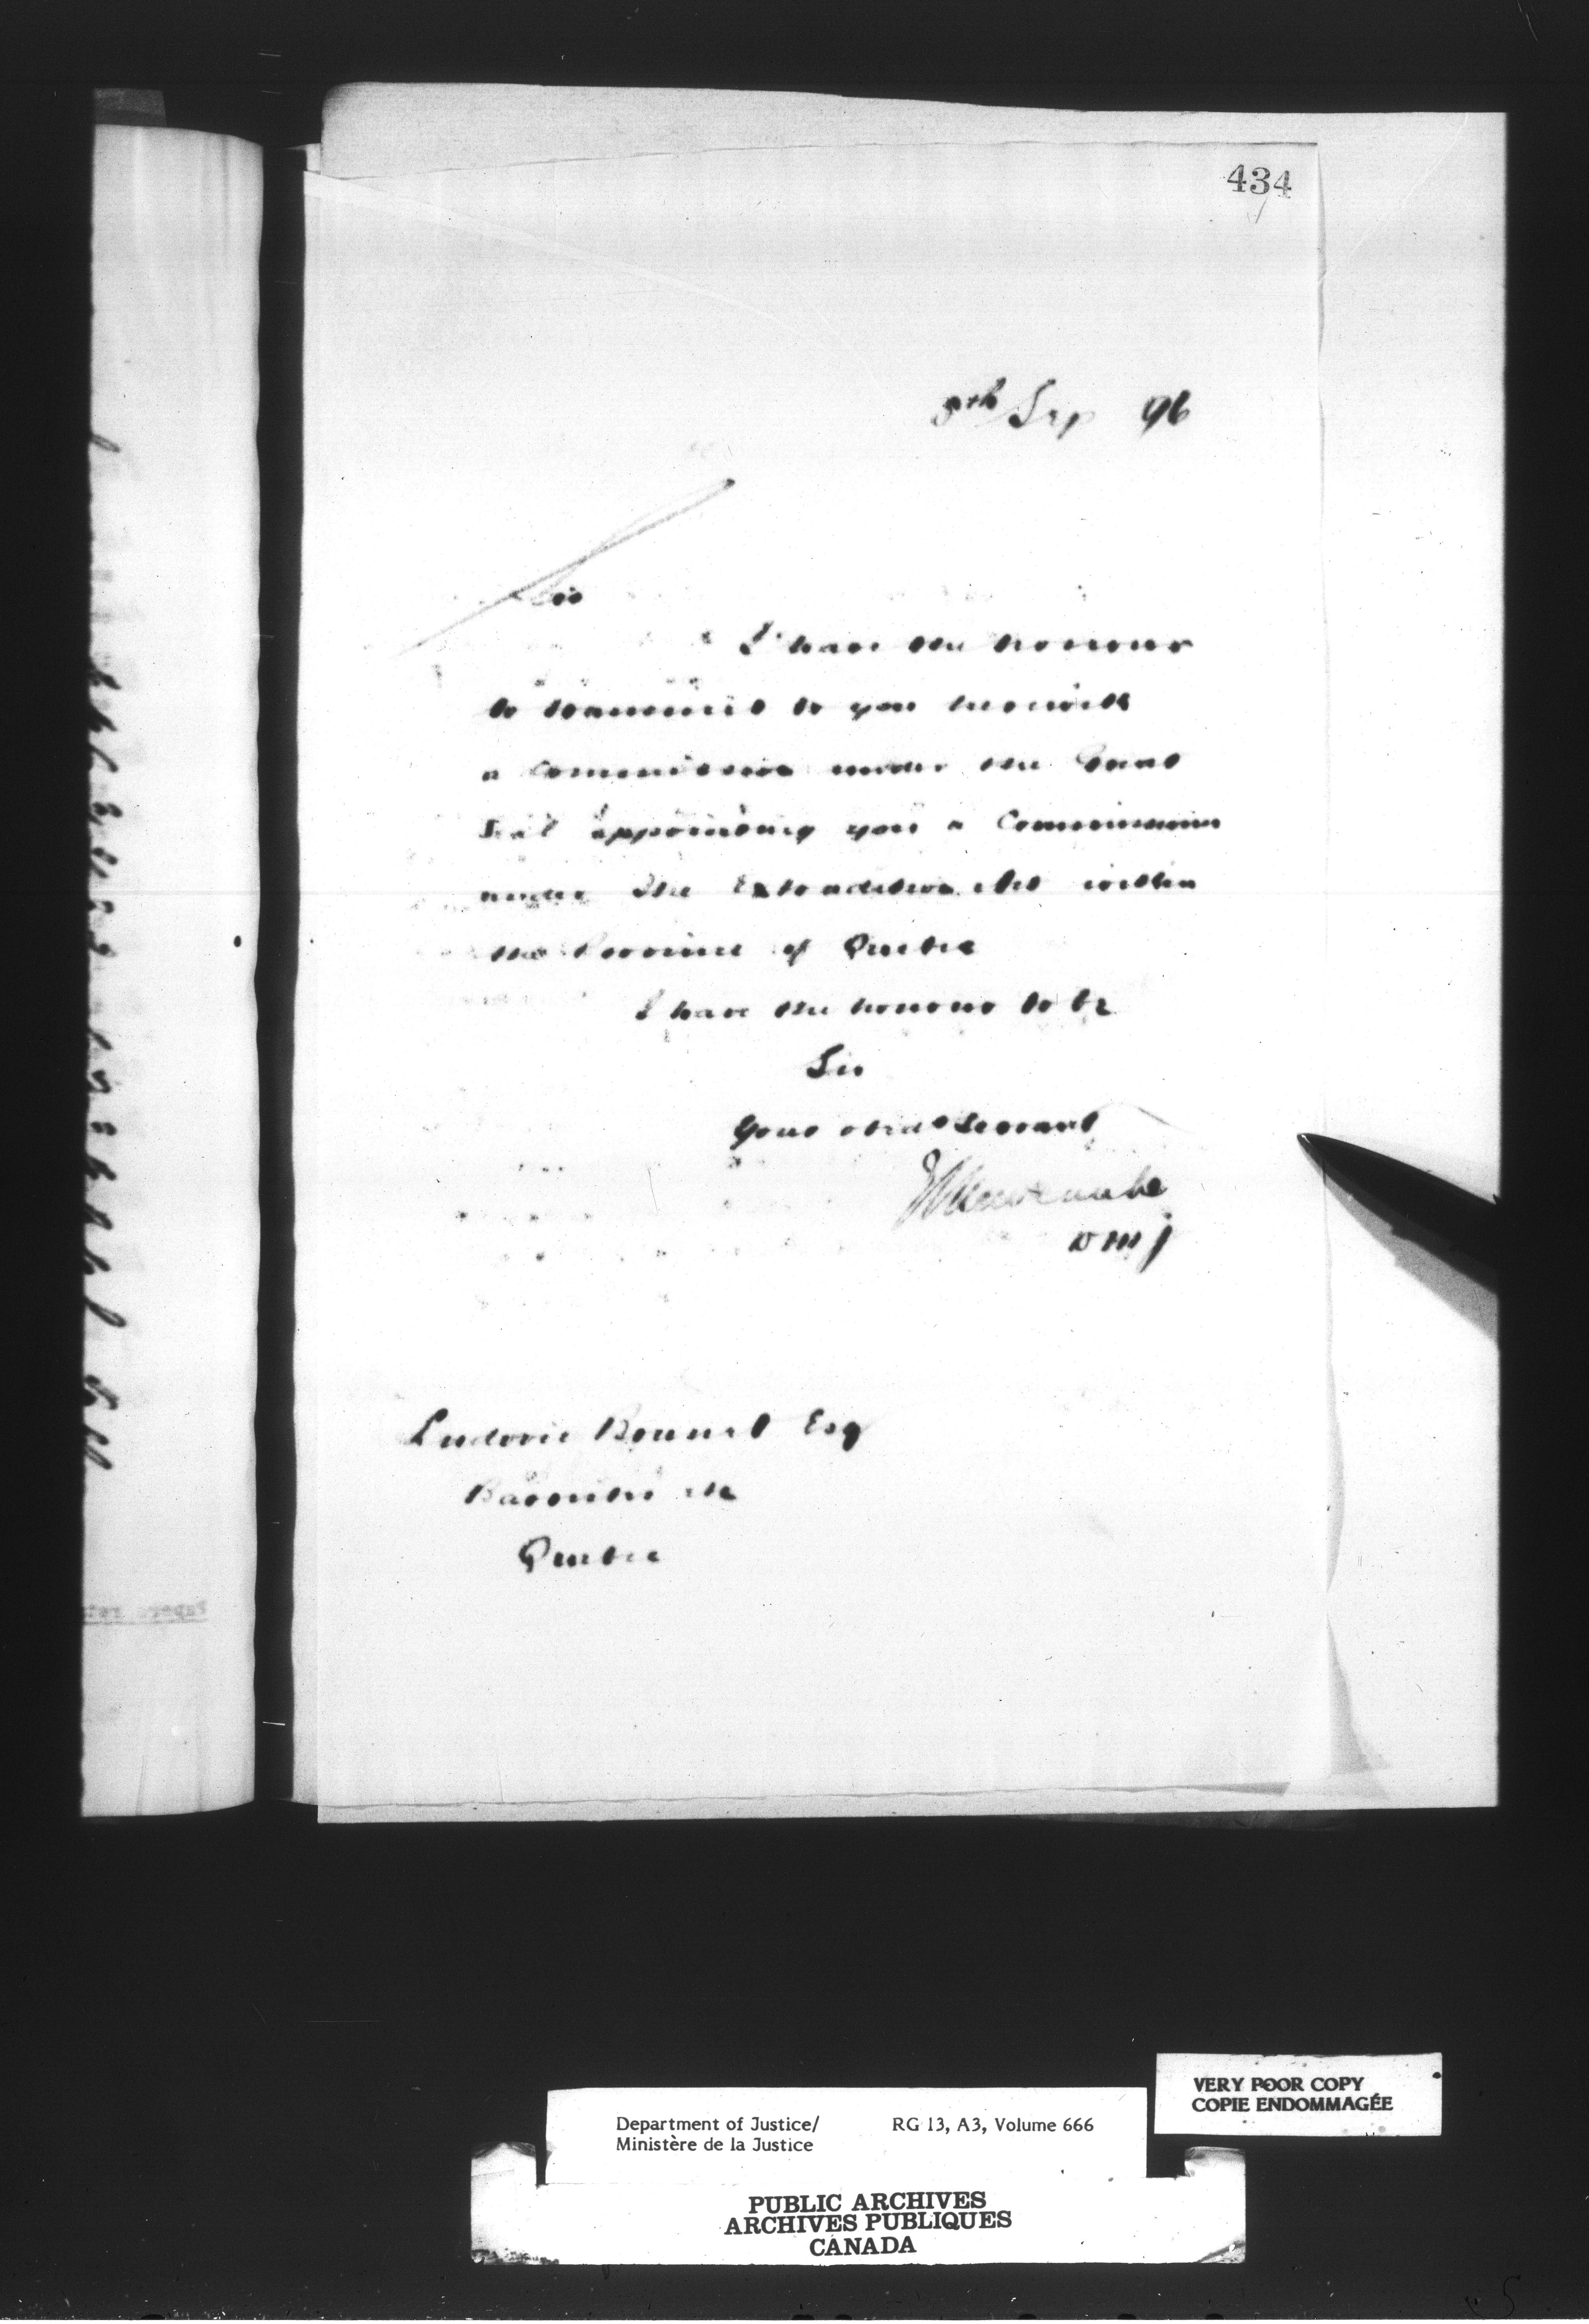 434
8th Sep 96
Sir
I have the honour
to transmit to you herewith
a Commission under the Great
Seal appointing you a Commissioner
under the Extradition Act within
the Province of Quebec
I have the honour to be
Sir
Your obedt Servant
Newcombe
DMJ
Ludovic Brunet Esq
Barrister etc
Quebec
VERY POOR COPY
COPIE ENDOMMAGÉE
Department of Justice/ RG 13, A3, Volume 666
Ministère de la Justice
PUBLIC ARCHIVES
ARCHIVES PUBLIQUES
CANADA